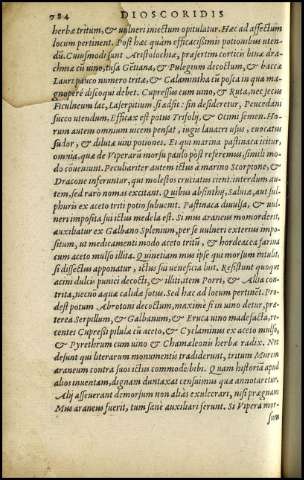 784 DIOSCORIDIS
herba tritum, & vulneri iniectum opitulatur. Hac ad affectum
locum pertinent. Post hac quàm efficacissimis potionibus uten-
dū. Cuiusmodi sunt Aristolochia, præsertim corticis binæ dra-
chmæ cū uino, itẽq́ Gẽtiana, & Pulegium decoctum, & baccæ
Lauri pauco numero tritæ, & Calamintha cū posca in qua ma-
gnopere discoqui debet. Cupressus cum uino, & Ruta, nec secius
Ficulneum lac, Laserpitium si adsit: sin desideretur, Peucedani
succo utendum. Efficax est potus Trifolij, & Ocimi semen. Ho-
rum autem omnium uicem pensat, iugis lauacri usus, euocatus
sudor, & dilutæ uino potiones. Et qui marina pastinaca icitur,
omnia, quæ de Viperarū morsu paulo pòst referemus, simili mo-
do conueniunt. Peculiariter autem ictus à marino Scorpione, &
Dracone inferuntur, qui molestos cruciatus cient: interdum au-
tem, sed rarò nomas excitant. Quibus absinthiū, Saluia, aut ful-
phuris ex aceto triti potio subuenit. Pastinaca diuulsa, & uul-
neri imposita sui ictus medela est. Si mus araneus momorderit,
auxiliabitur ex Galbano Splenium, per se vulneri externè impo-
situm, ut medicamenti modo aceto tritū, & hordeacea farina
cum aceto mulso illita. Quinetiam mus ipse qui morsum intulit,
si dissectus apponatur, ictus sui ueneficia luit. Resistunt quoque
acini dulcis punici decocti, & illiti, item Porri, & Allia con-
trita, necnō aqua calida fotus. Sed hac ad locum pertinēt. Pro-
dest potum Abrotoni decoctum, maximè si in uino detur, præ-
terea Serpillum, & Galbanum, & Eruca uino madefacta, re-
centes Cupressi pilulæ cū aceto, & Cyclaminus ex aceto mulso,
& Pyrethrum cum uino & Chamæleonis herbæ radix. Nec
desunt qui literarum monumentis tradiderunt, tritum Murem
araneum contra suos ictus commodè bibi. Quam historiā apud
alios inuentam, dignam duntaxat censuimus quæ annotaretur.
Alij asseuerant demorsum non aliàs exulcerari, nisi prægnans
Mus araneus fuerit, tum sanè auxiliari ferunt. Si Vipera mor-
sum